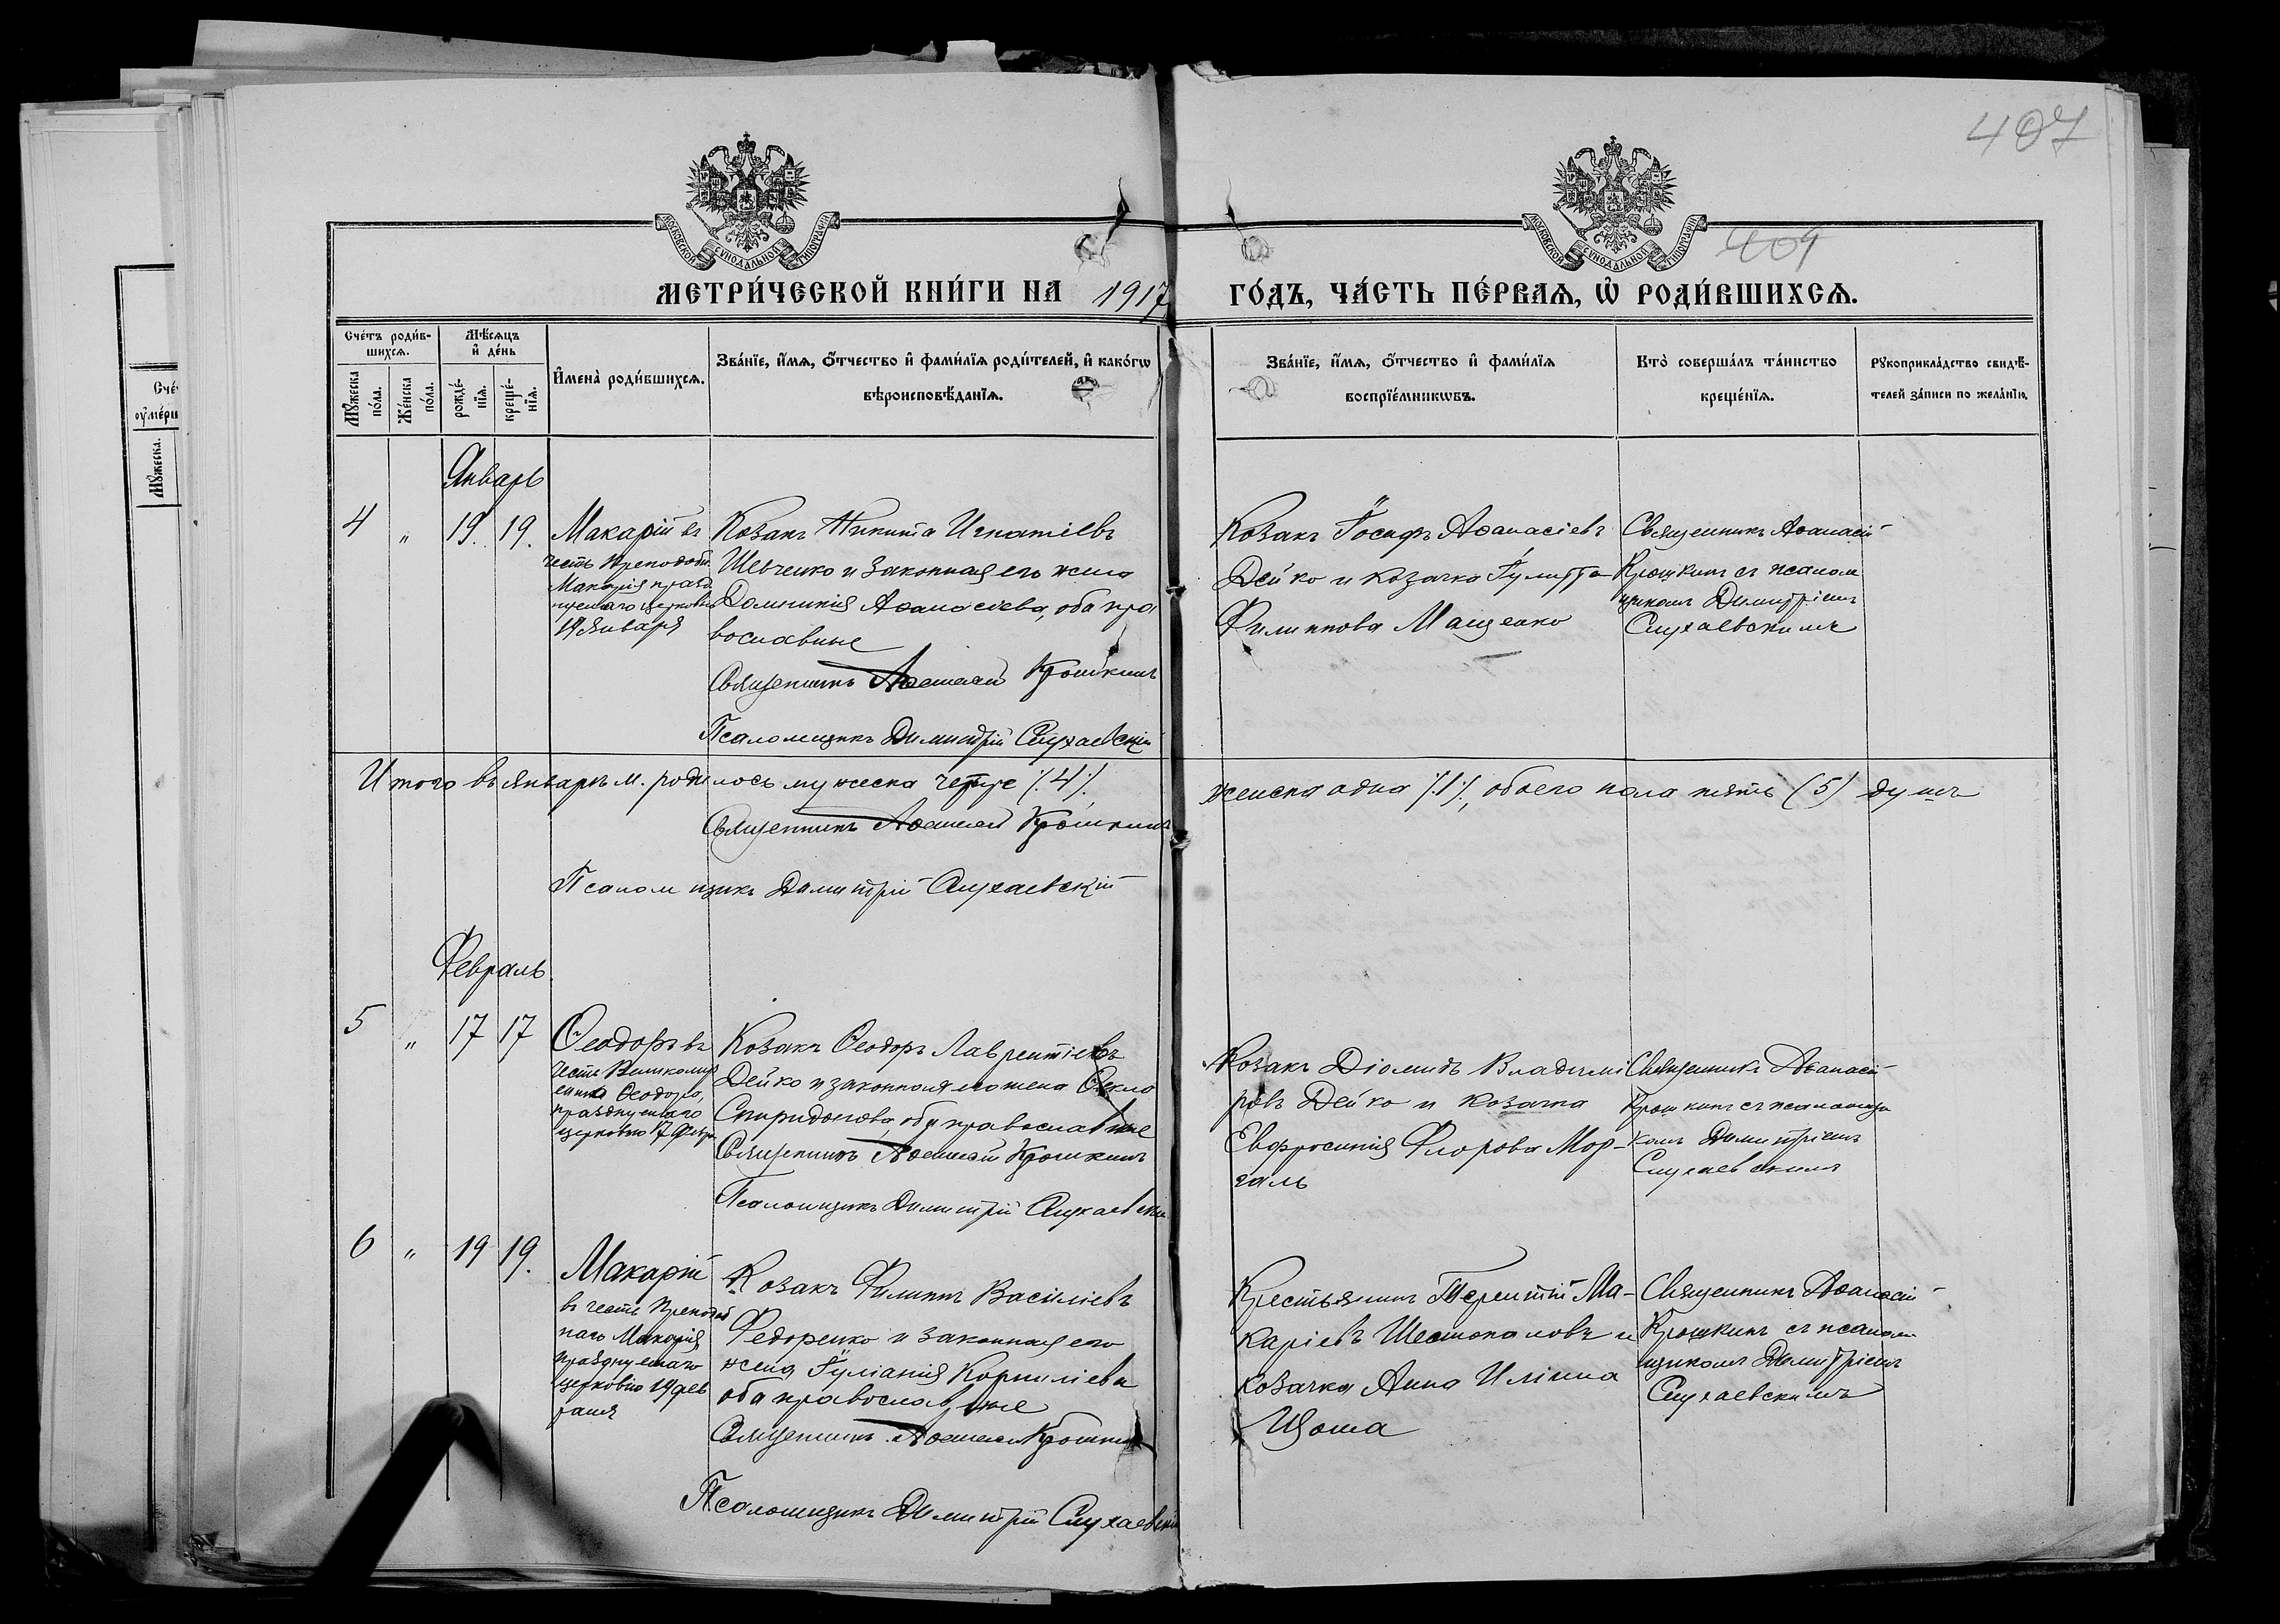 407
409
МОСКОВСКОЙ СѴНОДАЛЬНОЙ ТИПОГРАФІИ
МОСКОВСКОЙ СѴНОДАЛЬНОЙ ТИПОГРАФІИ
МЕТРИ́ЧЕСКОЙ КНИ́ГИ НА 1917
ГО́ДЪ, ЧА́СТЬ ПЕ́РВАЯ, Ѡ҆ РОДИ́ВШИХСЯ.
Сче́тъ роди́в-
шихся.
Мѣ́сяцъ
и҆ де́нь
Мꙋ́жеска
по́ла.
Же́нска
по́ла.
рожде́-
нїѧ.
креще́-
нїѧ.
И҆мена̀ роди́вшихся.
Зва́нїе, и҆́мѧ, ѻ҆́тчество и҆ фами́лїѧ роди́телей, и҆ како́гѡ
вѣроисповѣ́данїѧ.
Зва́нїе, и҆́мѧ, ѻ҆́тчество и҆ фами́лїѧ
воспрїе́мникѡвъ.
Кто̀ соверша́лъ та́инство
креще́нїѧ.
Рꙋкоприкла́дство свидѣ́-
телей за́писи по жела́нїю.
Январь
4 " 19. 19.
Макарій въ
честь Преподобн.
Макарія празд
нуемаго церковью
19 Января
Козакъ Никита Игнатіевъ
Шевченко и законная его жена
Домникія Аѳанасіева, оба пра
вославные
Священникъ Аѳанасій Крошкинъ
Псаломщикъ Димитрій Слухаевскій
Козакъ Іосифъ Аѳанасіевъ
Дейко и козачка Іулитта
Филиппова Мащенко
Священникъ Аѳанасій
Крошкинъ съ псалом
щикомъ Димитріемъ
Слухаевскимъ
Итого въ январѣ м. родилось мужеска четыре /.4/.
женска одна /.1/., обоего пола пять (5) душъ
Священникъ Аѳанасій Крошкинъ
Псаломщикъ Димитрій Слухаевскій
Февраль
5 " 17 17
Ѳеодоръ въ
честь Великому
ченика Ѳеодора,
празднуемаго
церковью 17 Февр.
Козакъ Ѳеодоръ Лаврентіевъ
Дейко и законная его жена Ѳекла
Спиридонова, оба православные
Священникъ Аѳанасій Крошкинъ
Псаломщикъ Димитрій Слухаевскій
Козакъ Діомидъ Владимі
ровъ Дейко и козачка
Евфросинія Флорова Мор-
галь
Священникъ Аѳанасій
Крошкинъ съ псаломщи
комъ Димитріемъ
Слухаевскимъ
6 " 19 19.
Макарій
въ честь Преподоб
наго Макарія
празднуемаго
церковью 19 фев
раля
Козакъ Филиппъ Васильевъ
Федоренко и законная его
жена Іуліанія Корниліева
оба православные
Священникъ Аѳанасій Крошкинъ
Псаломщикъ Димитрій Слухаевскій
Крестьянинъ Терентій Ма-
каріевъ Шестопаловъ и
козачка Анна Иліина
Цёма
Священникъ Аѳанасій
Крошкинъ съ псалом
щикомъ Димитріемъ
Слухаевскимъ
Сче́
ѹ҆ме́рш
Мꙋ́жеска.